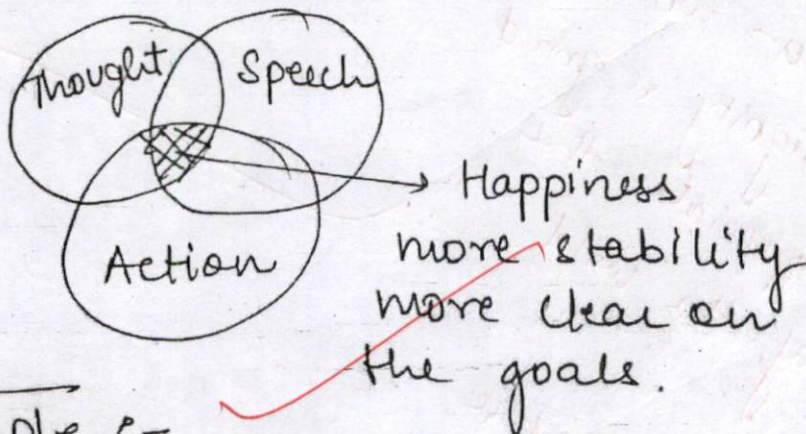 Thought Speech
Action
Happiness
more stability
more clear on
the goals.